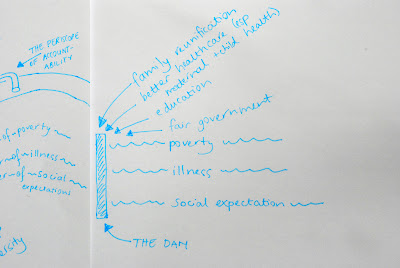 THE PERISCOPE
OF ACCOUNT-
ABILITY
family reunification
better healthcare (esp
maternal + child health)
education
fair government
of poverty
of illness
of social
expectations
poverty
illness
social expectation
THE DAM